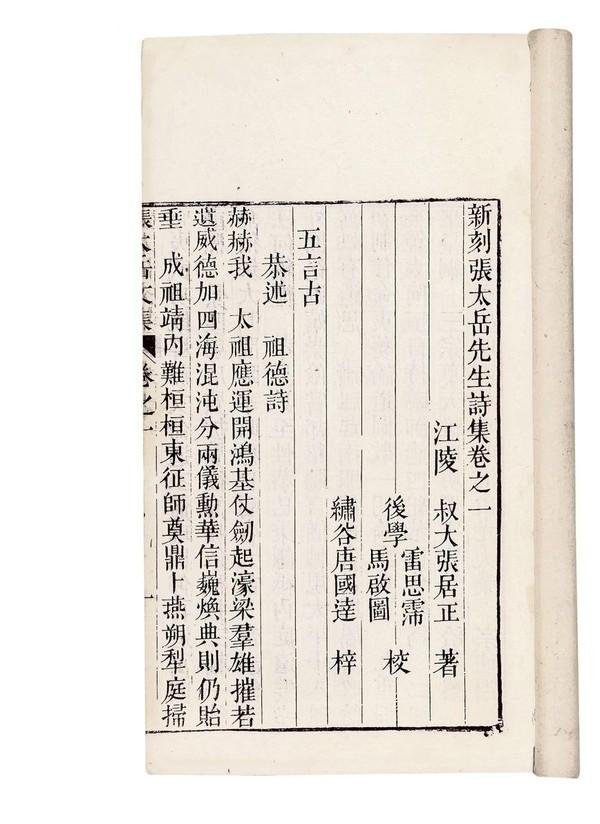 新刻張太岳先生詩集卷之一
江陵　叔大張居正　著
後學　雷思霈　馬啟圖　校
繡谷唐國達　梓
五言古
恭述　祖德詩
赫赫我　太祖應運開鴻基仗劒起濠梁羣雄摧若
遺威德加四海混沌分兩儀勳華信巍煥典則仍貽
垂　成祖靖內難桓桓東征師奠鼎卜燕朔犁庭掃
張太岳文集　卷之一　一